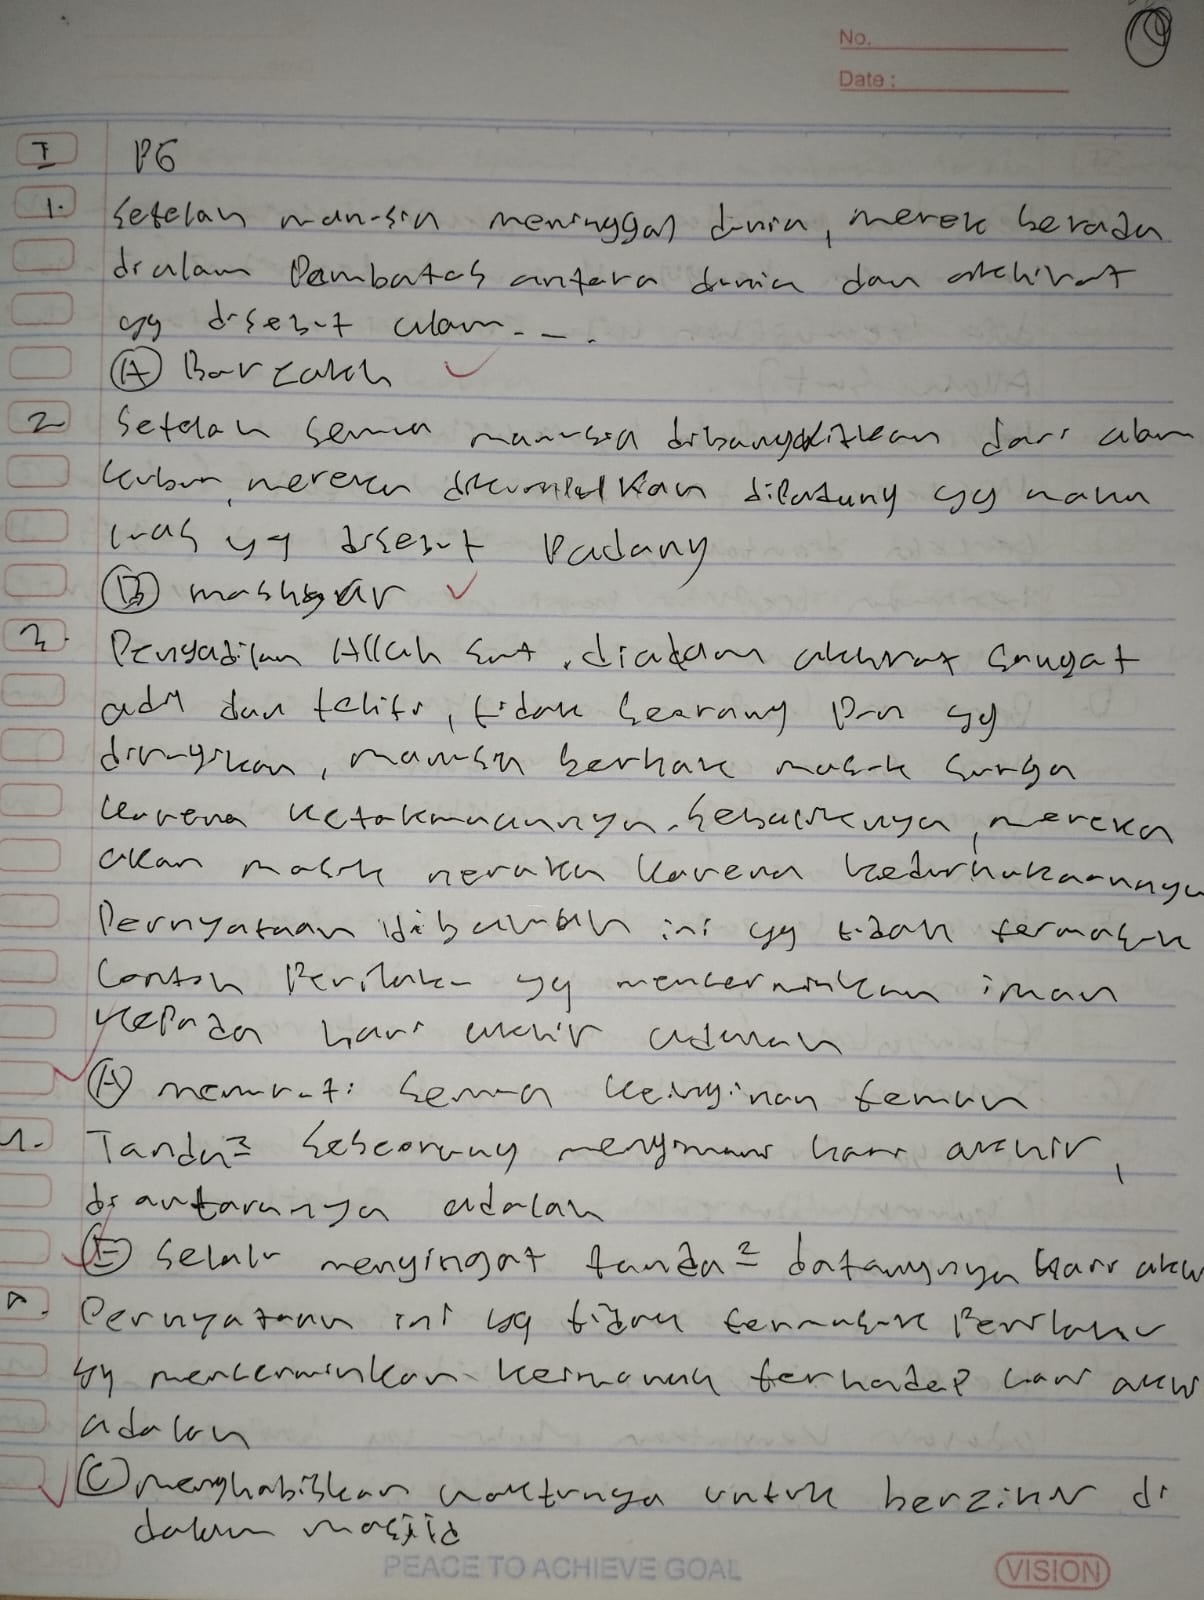 No.
Date :
I PG
1. Setelah manusia meninggal dunia, merek berada
di alam Pembatas antara dunia dan akhirat
yg disebut alam - - .
(A) Barzakh
2 Setelah semua manusia dibangkitkan dari alam
kubur, mereka dikumpulkan dipadang yg maha
luas yg disebut Padang
(B) mashyar
3. Pengadilan Allah Swt, diadam akhirat sangat
adil dan teliti, tidak seorang pun yg
dirugikan, manusia berhak masuk surga
karena ketakwaannya. Sebaliknya, mereka
akan masuk neraka karena kedurhakaannya
Pernyataan dibawah ini yg tidak termasuk
Contoh Perilaku yg mencerminkan iman
kepada hari akhir adalah
(A) menuruti semua keinginan teman
4. Tanda2 seseorang mengimani hari akhir,
di antaranya adalah
(E) Selalu mengingat tanda2 datangnya hari akhir
5. Pernyataan ini yg tidak termasuk Perilaku
yg mencerminkan keimanan terhadap hari akhir
adalah
(C) menghabiskan waktunya untuk berzikir di
dalam masjid
PEACE TO ACHIEVE GOAL
VISION